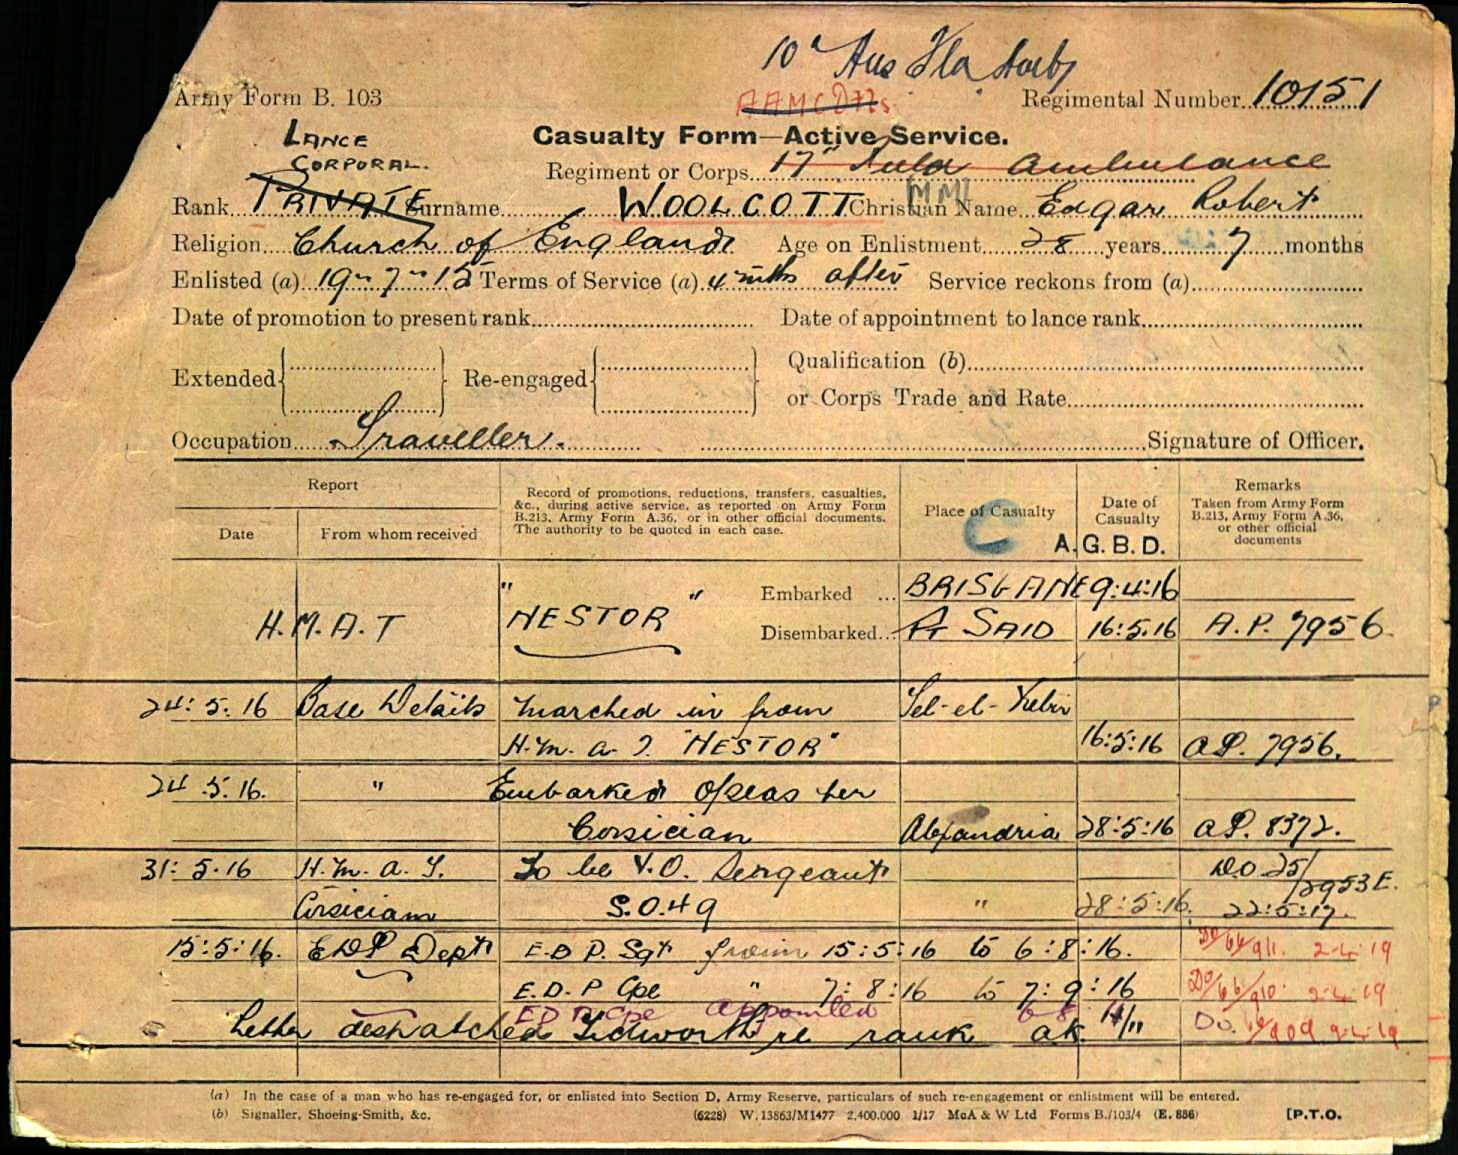 10th Aus Fld Amb
Army Form B. 103
AAMC Dtls
Regimental Number 10151
LANCE
CORPORAL.
Casualty Form—Active Service.
Regiment or Corps 17th Field Ambulance
Rank PRIVATE Surname WOOLCOTT Christian Name Edgar Robert
Religion Church of England Age on Enlistment 28 years 7 months
Enlisted (a) 19-7-15 Terms of Service (a) 4 mths after Service reckons from (a)
Date of promotion to present rank Date of appointment to lance rank
Extended Re-engaged Qualification (b)
or Corps Trade and Rate
Occupation Traveller. Signature of Officer.
Report
Date From whom received
Record of promotions, reductions, transfers, casualties,
&c., during active service, as reported on Army Form
B.213, Army Form A.36, or in other official documents.
The authority to be quoted in each case.
Place of Casualty
C
Date of
Casualty
A.G.B.D.
Remarks
Taken from Army Form
B.213, Army Form A.36,
or other official
documents
H.M.A.T "NESTOR" Embarked ... BRISBANE 9:4:16
Disembarked... Pt SAID 16:5.16 A.P. 7956
24:5:16 Base Details Marched in from Tel-el-Kebir
H.M.A.T. "NESTOR" 16:5:16 A.P. 7956.
24.5.16. " Embarked O/seas per
Corsician Alexandria 28:5:16 A.P. 8372.
31:5.16 H.M.A.T. To be V.O. Sergeant D.O. 25/
Corsician S.O.49 " 28:5:16. 2953E.
22:5:17.
15:5:16. EDP Dept E.D.P. Sgt from 15:5:16 to 6:8:16. Do/66/911. 2-4-19
E.D.P Cpl " 7:8:16 to 7:9:16 Do/66/910. 2-4-19
EDP Cpl appointed 6-8 Do. 66/909 2-4-19
Letter despatched Tidworth re rank ak 14/11
(a) In the case of a man who has re-engaged for, or enlisted into Section D, Army Reserve, particulars of such re-engagement or enlistment will be entered.
(b) Signaller, Shoeing-Smith, &c. (6228) W.13863/M1477 2,400.000 1/17 McA & W Ltd Forms B./103/4 (E. 886) [P.T.O.